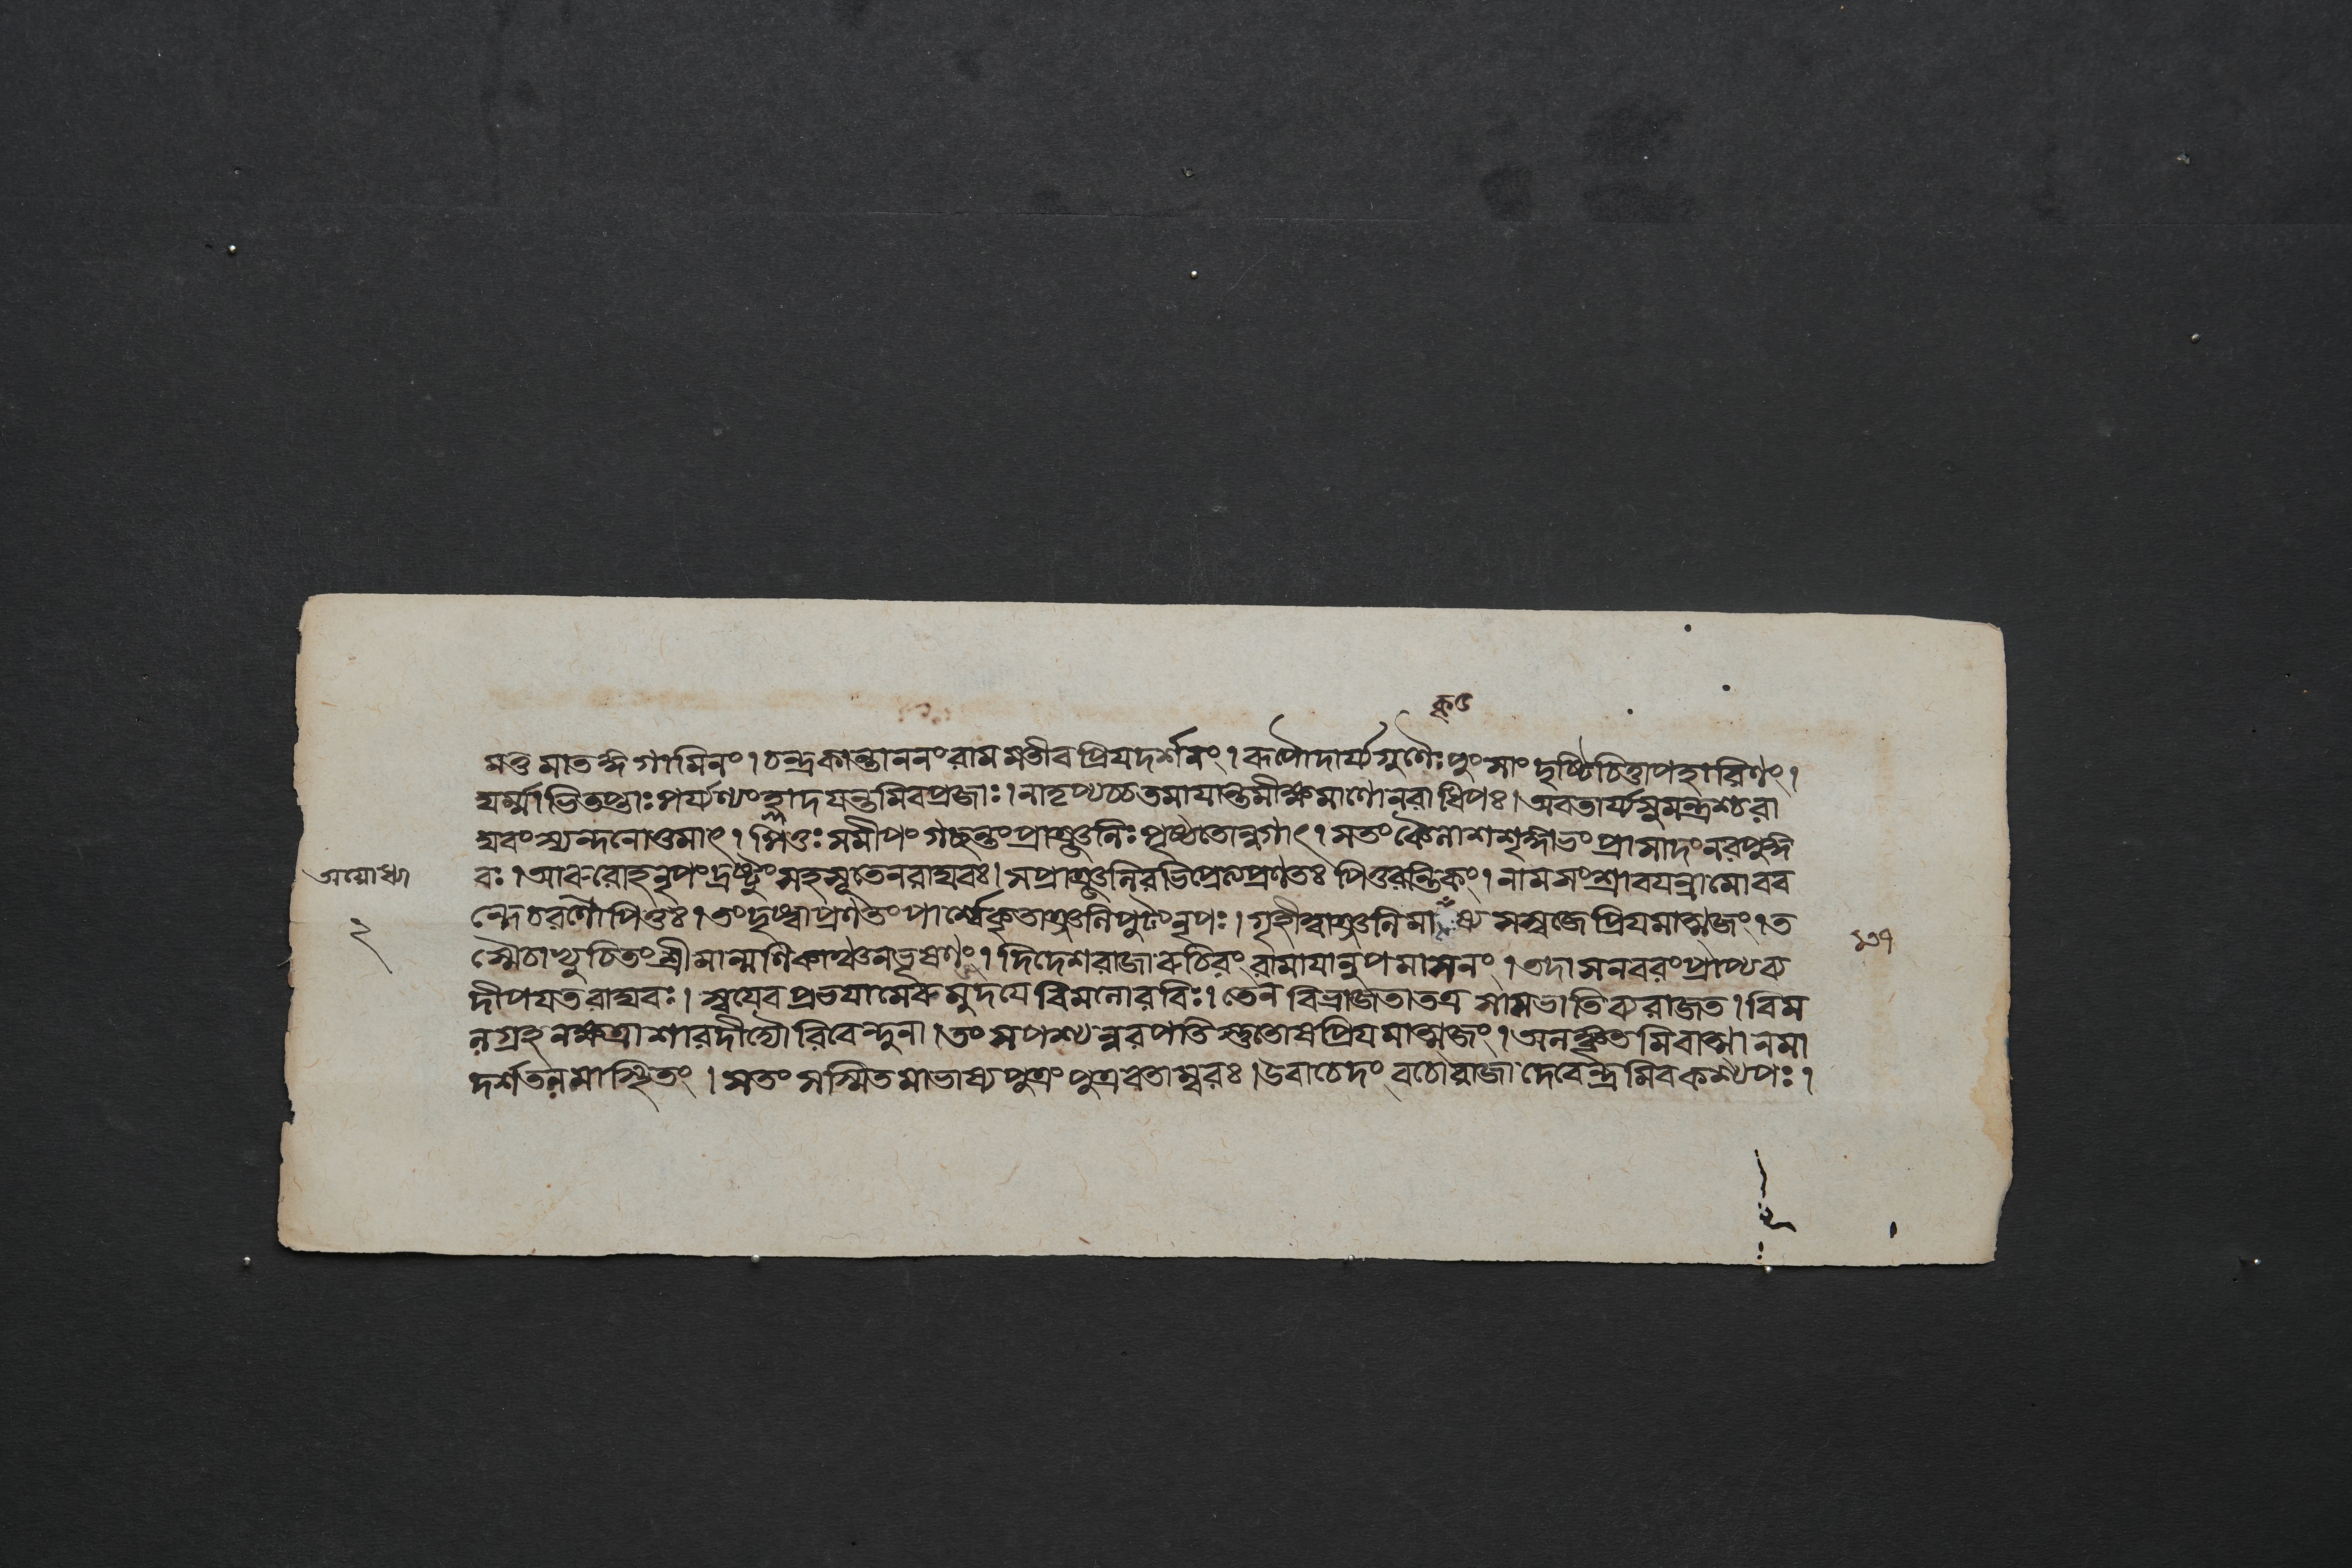 কৃ৫
মত্তমাতঙ্গগামিনং। চন্দ্রকান্তাননং রামমতীব প্রিযদর্শনং। রূপৌদার্য্যগুণৈঃ পুংসাং দৃষ্টিচিত্তাপহারিণং।
ঘর্ম্মাভিতপ্তাঃ পর্য্যণ্যং হ্লাদযন্তমিব প্রজাঃ। নাতৃপ্যচ্চ তমাযান্তমীক্ষমাণো নরাধিপঃ। অবতার্য্য সুমন্ত্রশ্চ রা
ঘবং স্যন্দনোত্তমাৎ। পিতুঃ সমীপং গচ্ছন্তং প্রাঞ্জলিঃ পৃষ্ঠতোন্বগাৎ। স তং কৈলাশশৃঙ্গাভং প্রাসাদং নরপুঙ্গ
বঃ। আরুরোহ নৃপং দ্রষ্টুং সহ সূতেন রাঘবঃ। স প্রাঞ্জলিরভিপ্রেত্য প্রণতঃ পিতুরন্তিকং। নাম সংশ্রাবযন্রামো বব
অযোধ্যা
ন্দে চরণৌ পিতুঃ। তং দৃষ্ট্বা প্রণতং পার্শ্বে কৃতাঞ্জলিপুটং নৃপঃ। গৃহীত্বাঞ্জলিমাকৃষ্য সস্বজে প্রিযমাত্মজং। ত
২
স্মৈ চাভ্যুচিতং শ্রীমান্মণিকাঞ্চনভূষণং। দিদেশ রাজা রুচিরং রামাযানুপমাসনং। তদাসনবরং প্রাপ্য ব্য
দীপযত রাঘবঃ। স্বযেব প্রভযা মেরুমুদযে বিমলো রবিঃ। তেন বিভ্রাজতা তত্র সা সভাতিব্যরাজত। বিম
লগ্রহনক্ষত্রা শারদী দ্যৌরিবেন্দুনা। তং স পশ্যন্নরপতিস্তুতোষ প্রিযমাত্মজং। অলঙ্কৃতমিবাত্মানমা
দর্শতলমাস্থিতং। স তং সস্মিতমাভাষ্য পুত্রং পুত্রবতাম্বরঃ। উবাচেদং বচো রাজা দেবেন্দ্রমিব কশ্যপঃ।